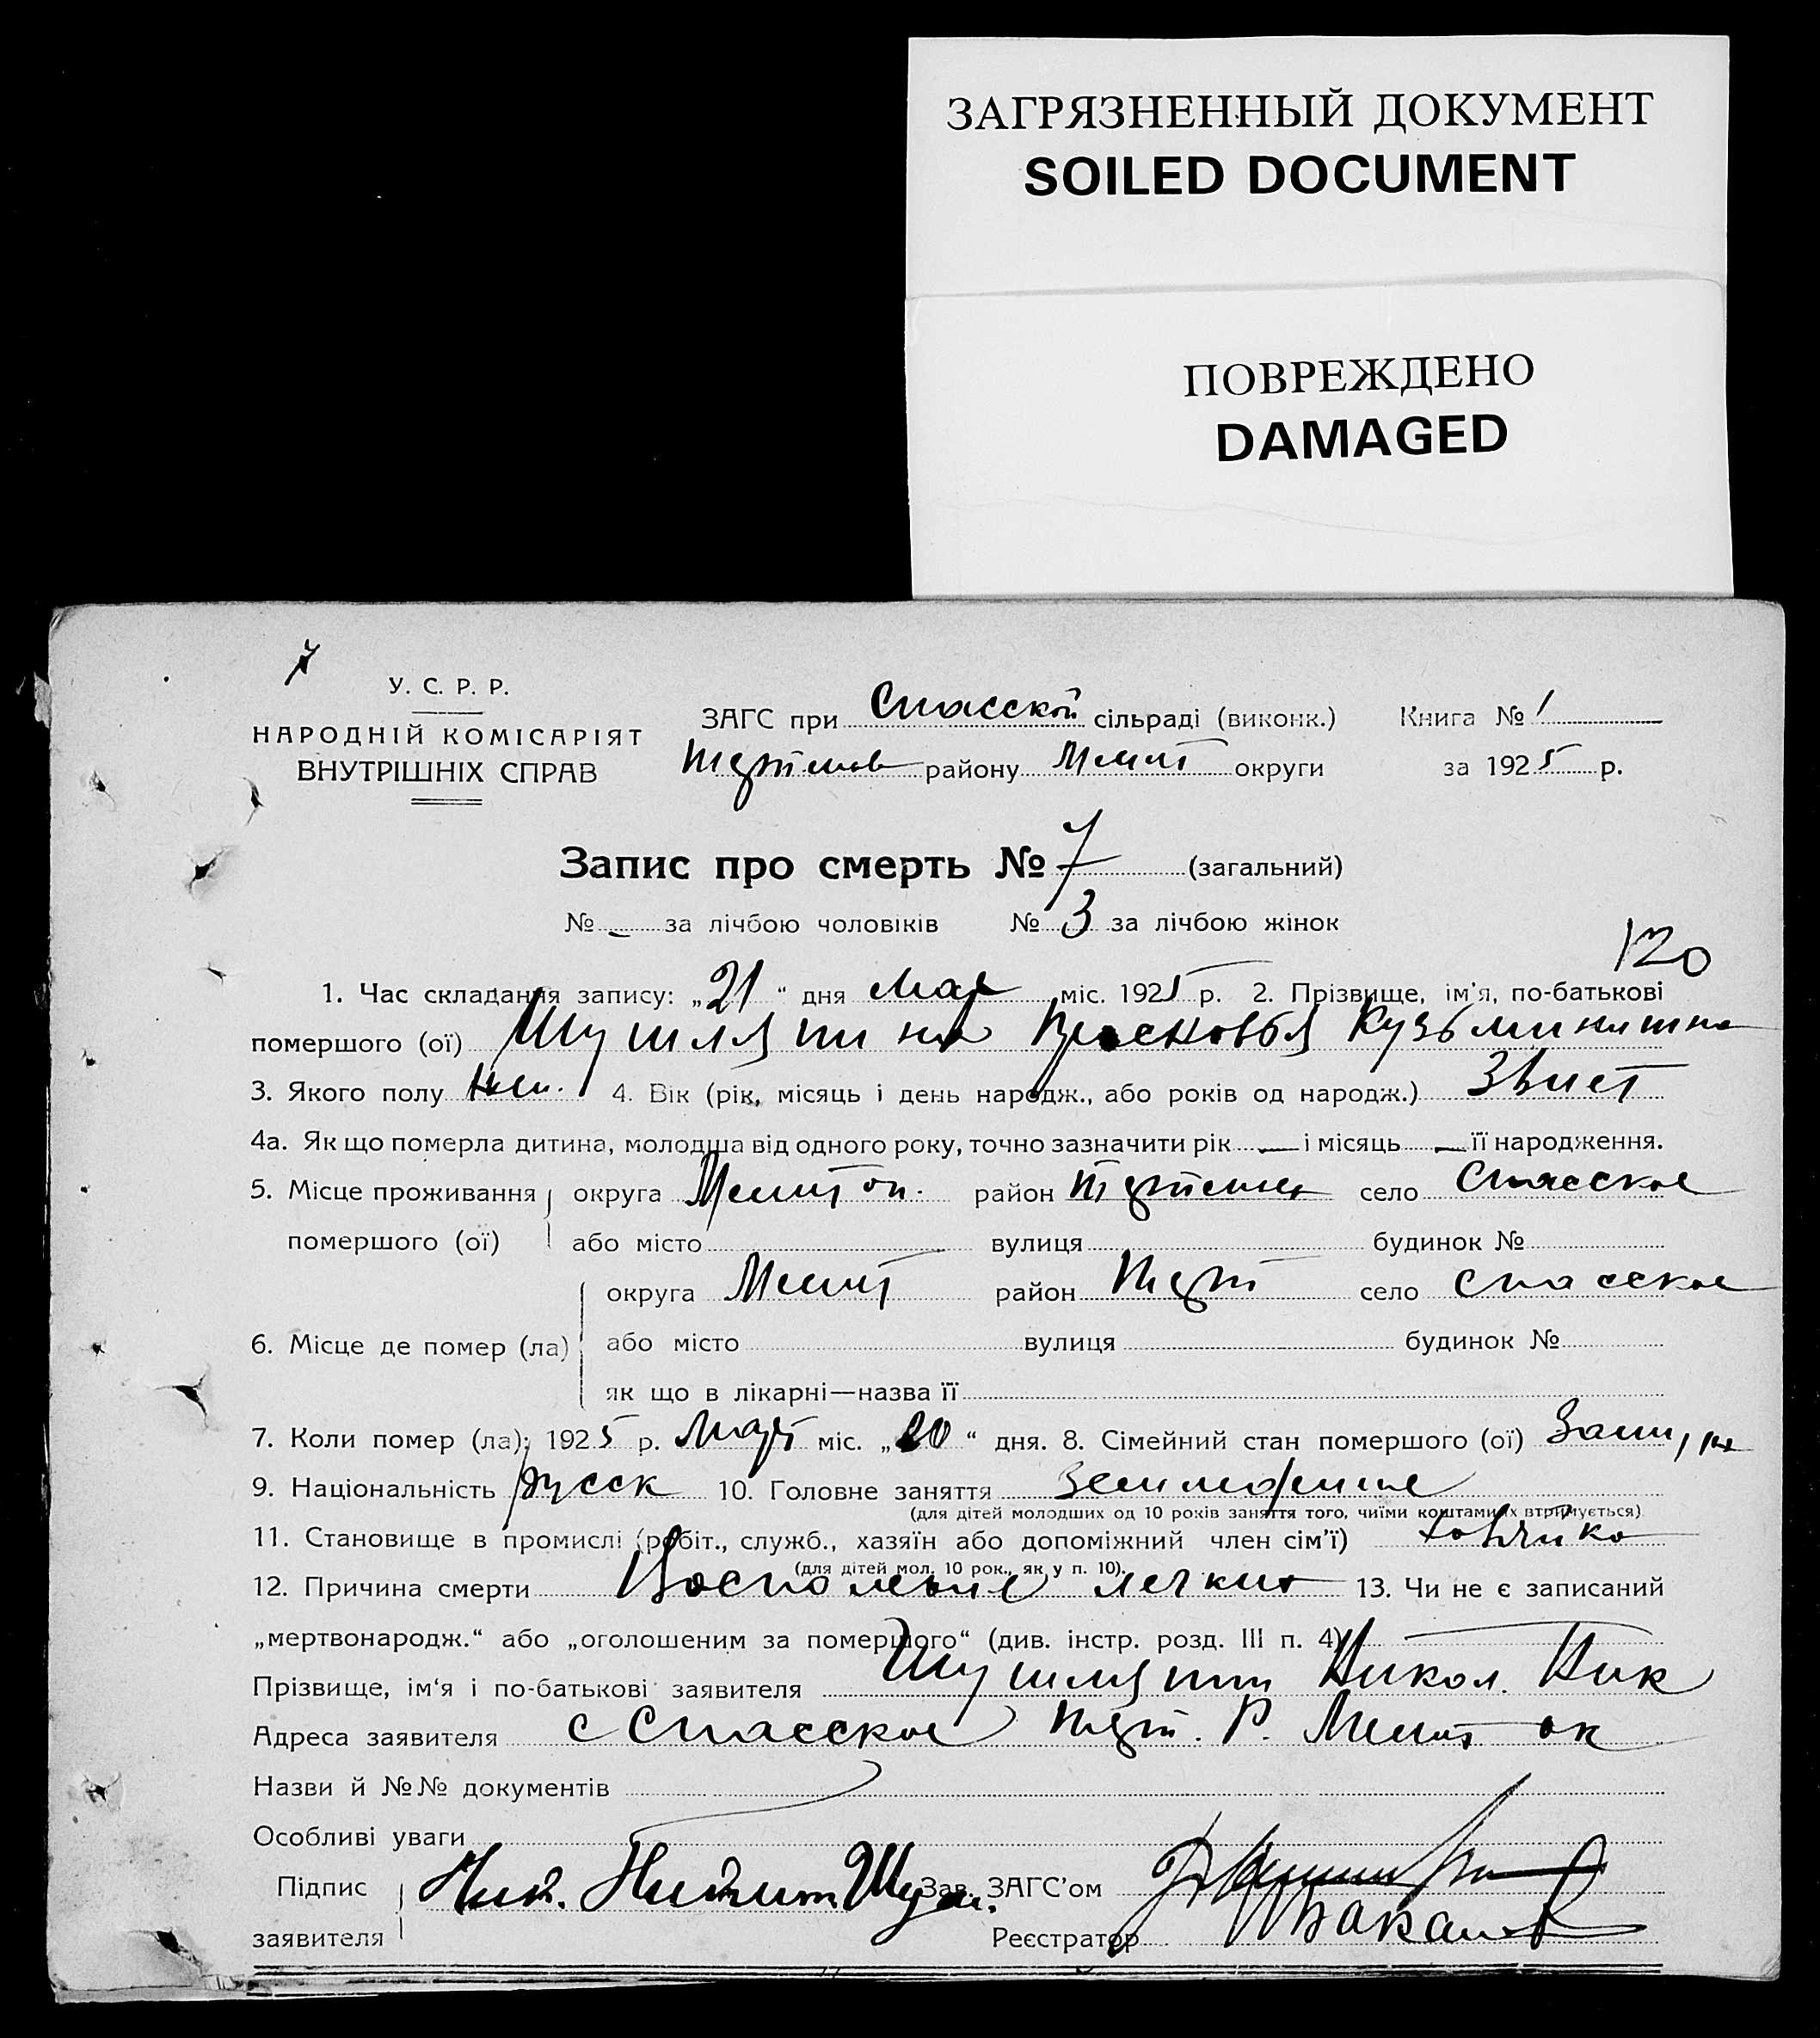 ЗАГРЯЗНЕННЫЙ ДОКУМЕНТ
SOILED DOCUMENT
ПОВРЕЖДЕНО
DAMAGED
7
У. С. Р. Р.
НАРОДНІЙ КОМІСАРІЯТ
ВНУТРІШНІХ СПРАВ
ЗАГС при Спасской сільраді (виконк.) Книга № 1
району Мелит округи за 1925 р.
Запис про смерть № 7 (загальний)
№ - за лічбою чоловіків № 3 за лічбою жінок
120
1. Час складання запису: „21“ дня мая міс. 1925 р. 2. Прізвище, ім'я, по-батькові
помершого (ої) Шушляпина Прасковья Кузьминишна
3. Якого полу жен. 4. Вік (рік, місяць і день народж., або років од народж.)
4а. Як що померла дитина, молодша від одного року, точно зазначити рік — і місяць — її народження.
5. Місце проживання округа Мелитоп. район село Спасское
помершого (ої) або місто вулиця будинок №
округа Мелит район село Спасское
6. Місце де помер (ла) або місто вулиця будинок №
як що в лікарні—назва її
7. Коли помер (ла): 1925 р. міс. „20“ дня. 8. Сімейний стан помершого (ої)
9. Національність русск 10. Головне заняття земледелие
(для дітей молодших од 10 років заняття того, чиїми коштами їх втримується)
11. Становище в промислі (робіт., служб., хазяїн або допоміжний член сім'ї)
(для дітей мол. 10 рок., як у п. 10).
12. Причина смерти Воспаление легких 13. Чи не є записаний
„мертвонародж.“ або „оголошеним за помершого“ (див. інстр. розд. III п. 4) —
Прізвище, ім'я і по-батькові заявителя Шушляпин Никол. Ник
Адреса заявителя с Спасское Р. Мелит ок
Назви й №№ документів
Особливі уваги
Підпис Зав. ЗАГС'ом
заявителя Реєстратор